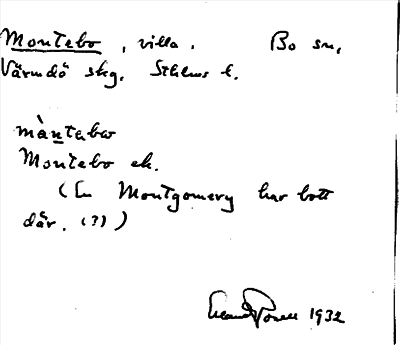 Montebo, villa. Bo sn,
Värmdö skg. Sthlms l.
màntabω
Montebo ek.
(En Montgomery har bott
där. (?))
1932